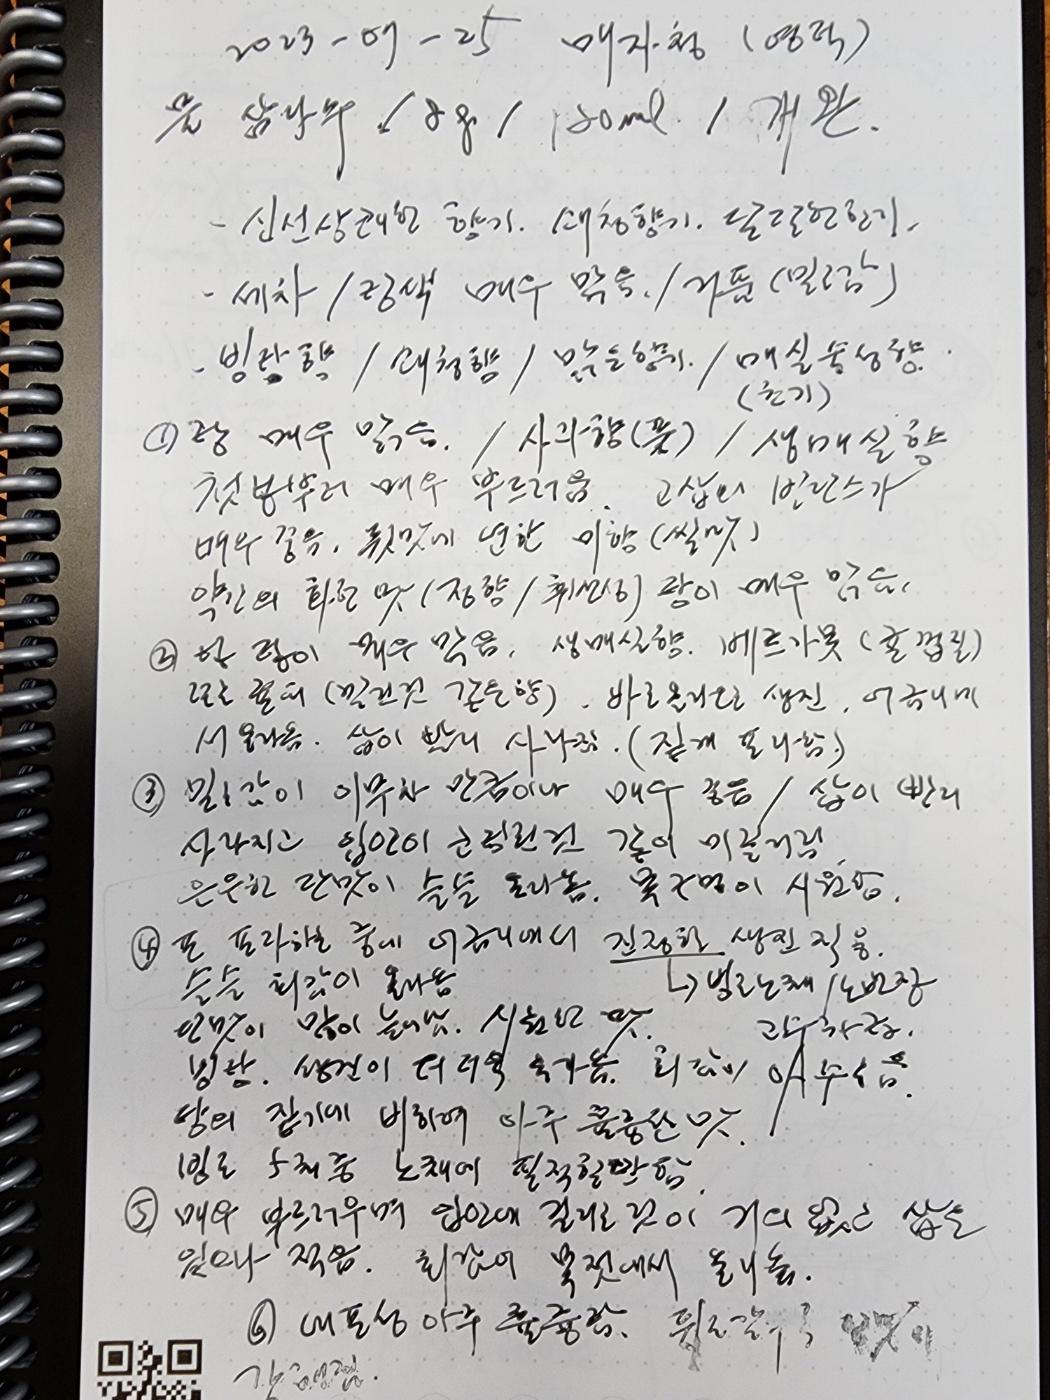 2023-09-25 매지청 (영덕)
물 삼다수 / 8g / 120ml / 개완.
- 신선상쾌한 향기. 대청향기. 달달한 향기.
- 세차 / 탕색 매우 맑음. / 거품 (밀크감)
- 빙탕향 / 대청향 / 맑은향기. / 매실농성향.
(향기)
① 탕 매우 맑음. / 사과향(풋) / 생매실향
첫봉부터 매우 부드러움. 고삽의 밸런스가
매우 좋음. 뒷맛에 연한 미향 (쌀맛)
약간의 회운 맛 (정향 / 휘발성) 탕이 매우 맑음.
② 향 탕이 매우 맑음. 생매실향. 베르가못 (귤껍질)
서 올라옴. 삽이 빨리 사라짐. (짙게 포다움)
③ 밀크감이 이무차 만큼이나 매우 좋음 / 삽이 빨리
사라지고 입안이 코팅된것 같이 미끌거림
은은한 단맛이 슬슬 올라옴. 목구멍이 시원함.
④ 포 포다하는 중에 어금니에서 진정한 생진 작용.
슬슬 회감이 올라옴 ↳ 빙도노채 / 노반장
단맛이 많이 늘어남. 시원한 맛. 고수차급.
빙탕. 생진이 더더욱 올라옴. 회감이 아주 좋음.
탕의 짙기에 비하여 아주 훌륭한 맛.
빙도 5채중 노채에 필적할만함.
⑤ 매우 부드러우며 입안에 걸리는 것이 거의 없고 삽은
일마나 적음. 회감이 목젖에서 올라옴.
⑥ 내포성 아주 훌륭함. 뒤로갈수록